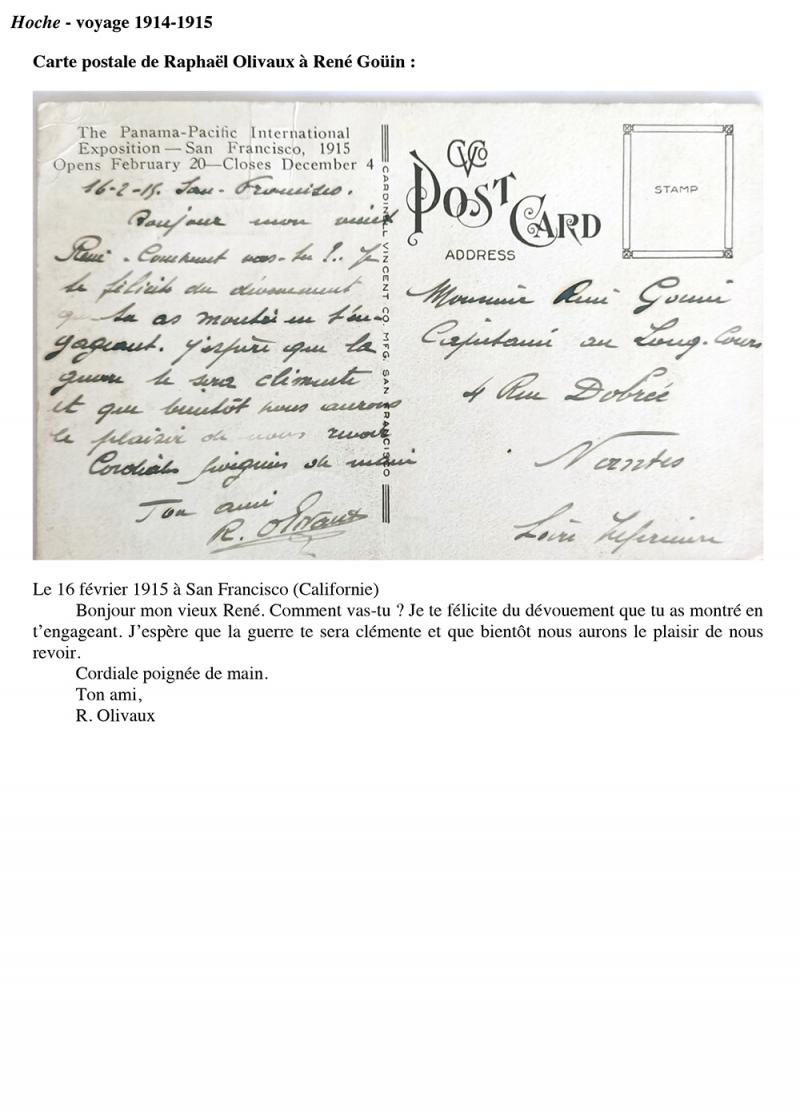 Hoche - voyage 1914-1915
Carte postale de Raphaël Olivaux à René Goüin :
The Panama-Pacific International
Exposition — San Francisco, 1915
Opens February 20—Closes December 4
16-2-15. San-Francisco.
Bonjour mon vieux
René. Comment vas-tu ?.. Je
te félicite du dévouement
que tu as montré en t'en-
gageant. J'espère que la
guerre te sera clémente
et que bientôt nous aurons
le plaisir de nous revoir
Cordiale poignée de main
Ton ami
R. Olivaux
CARDINELL VINCENT CO. MFG. SAN FRANCISCO
CVCo
POST CARD
ADDRESS
STAMP
Monsieur René Gouin
Capitaine au Long-Cours
4 Rue Dobrée
Nantes
Loire Inférieure
Le 16 février 1915 à San Francisco (Californie)
Bonjour mon vieux René. Comment vas-tu ? Je te félicite du dévouement que tu as montré en
t'engageant. J'espère que la guerre te sera clémente et que bientôt nous aurons le plaisir de nous
revoir.
Cordiale poignée de main.
Ton ami,
R. Olivaux